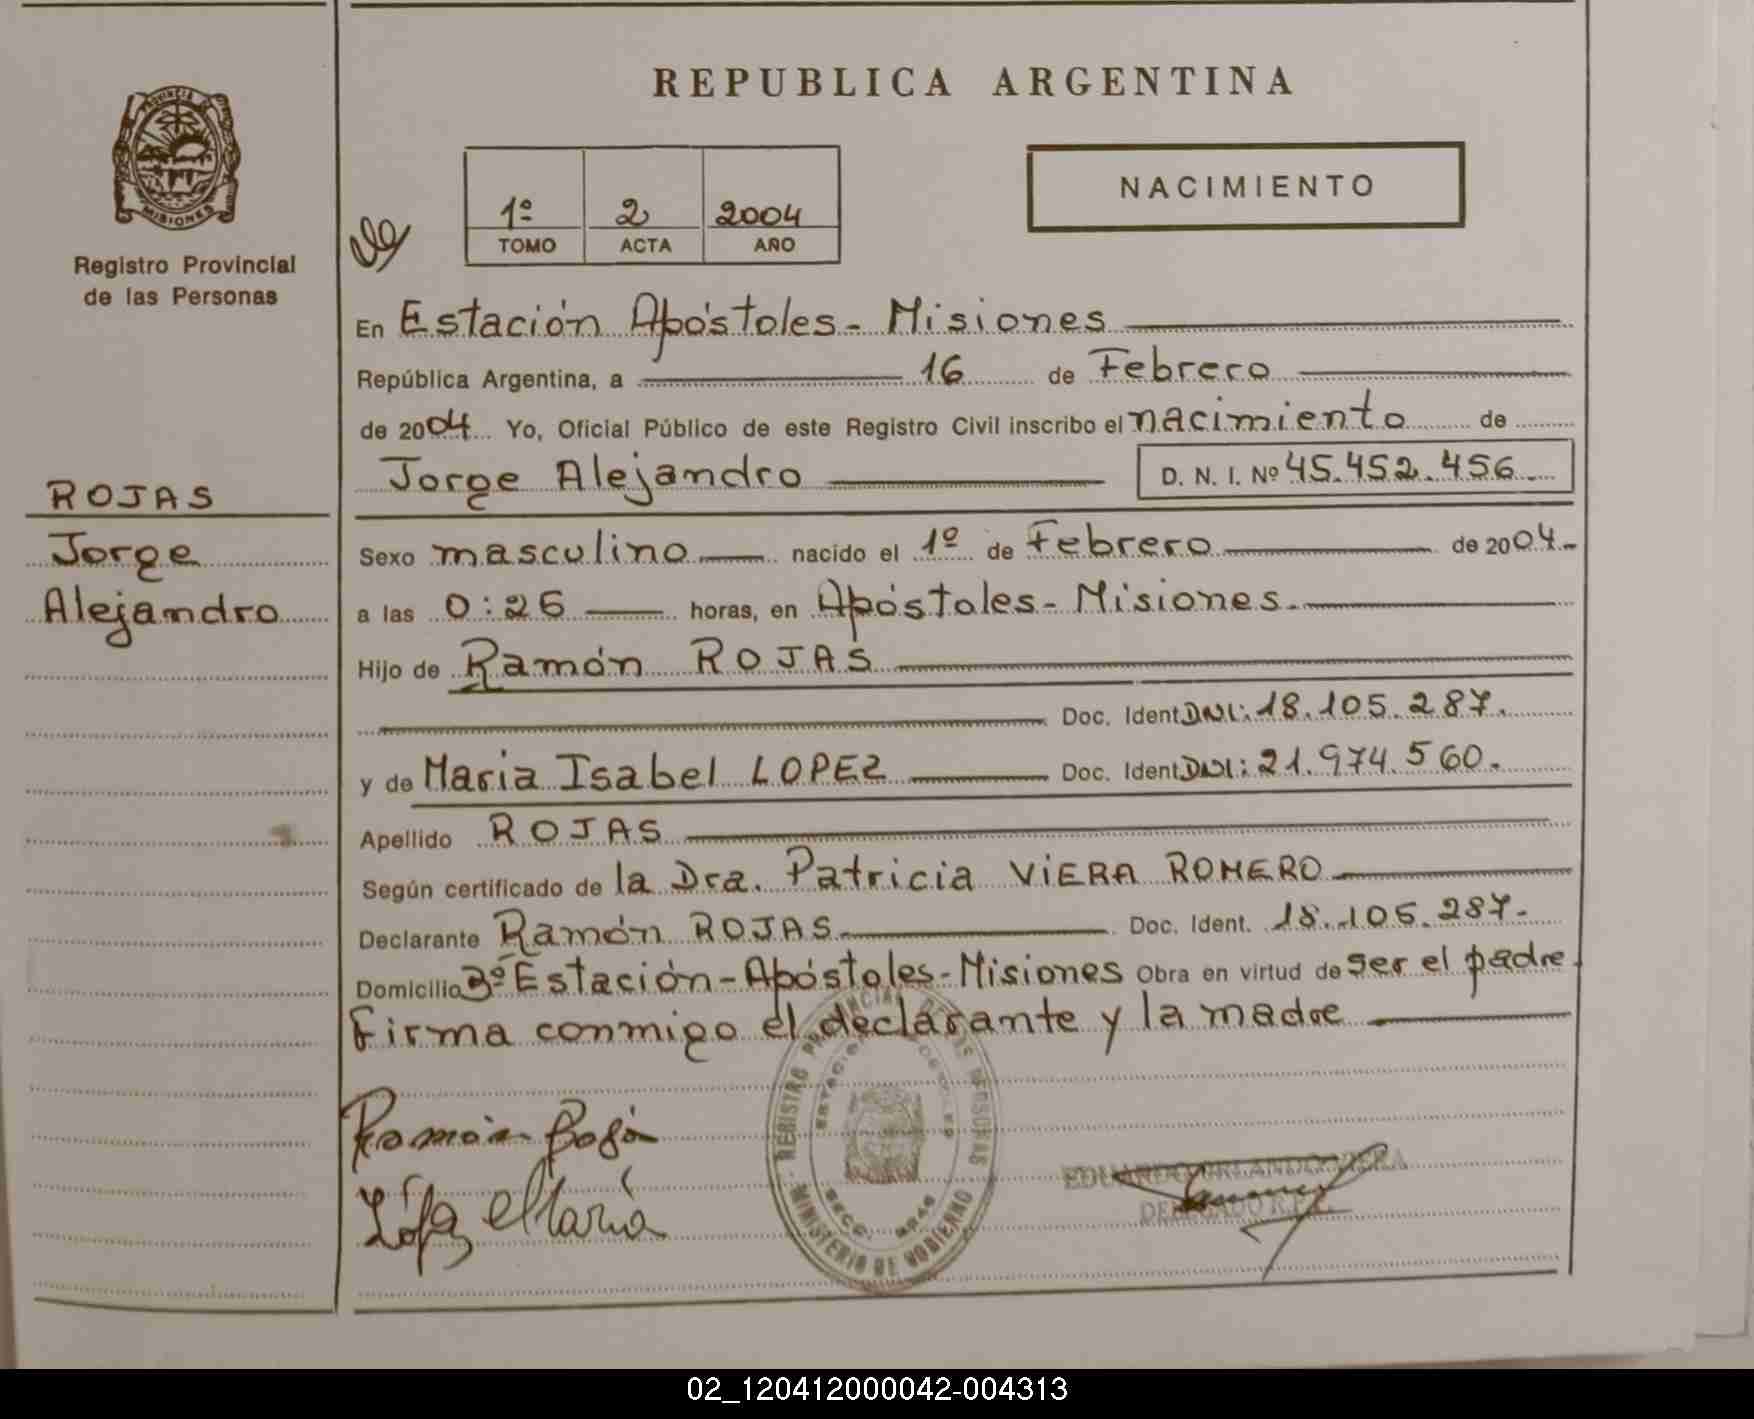 REPUBLICA ARGENTINA
PROVINCIA DE
MISIONES
Registro Provincial
de las Personas
1º 2 2004
TOMO ACTA AÑO
NACIMIENTO
En Estación Apóstoles - Misiones
República Argentina, a 16 de Febrero
de 2004 Yo, Oficial Público de este Registro Civil inscribo el nacimiento de
Jorge Alejandro D. N. I. Nº 45.452.456
ROJAS
Jorge
Alejandro
Sexo masculino nacido el 1º de Febrero de 2004.-
a las 0:25 horas, en Apóstoles - Misiones.
Hijo de Ramón ROJAS
Doc. Ident. DNI: 18.105.287.
y de Maria Isabel LOPEZ Doc. Ident. DNI: 21.974.560.
Apellido ROJAS
Según certificado de la Dra. Patricia ViERA ROMERO
Declarante Ramón ROJAS Doc. Ident. 18.105.287.
Domicilio Bº Estación - Apóstoles - Misiones Obra en virtud de ser el padre.
Firma conmigo el declarante y la madre
Ramón Rojas
López Maria
REGISTRO PROVINCIAL DE LAS PERSONAS
ESTACION APOSTOLES
MINISTERIO DE GOBIERNO
EDUARDO ORLANDO VIERA
DELEGADO R.P.P.
02_120412000042-004313